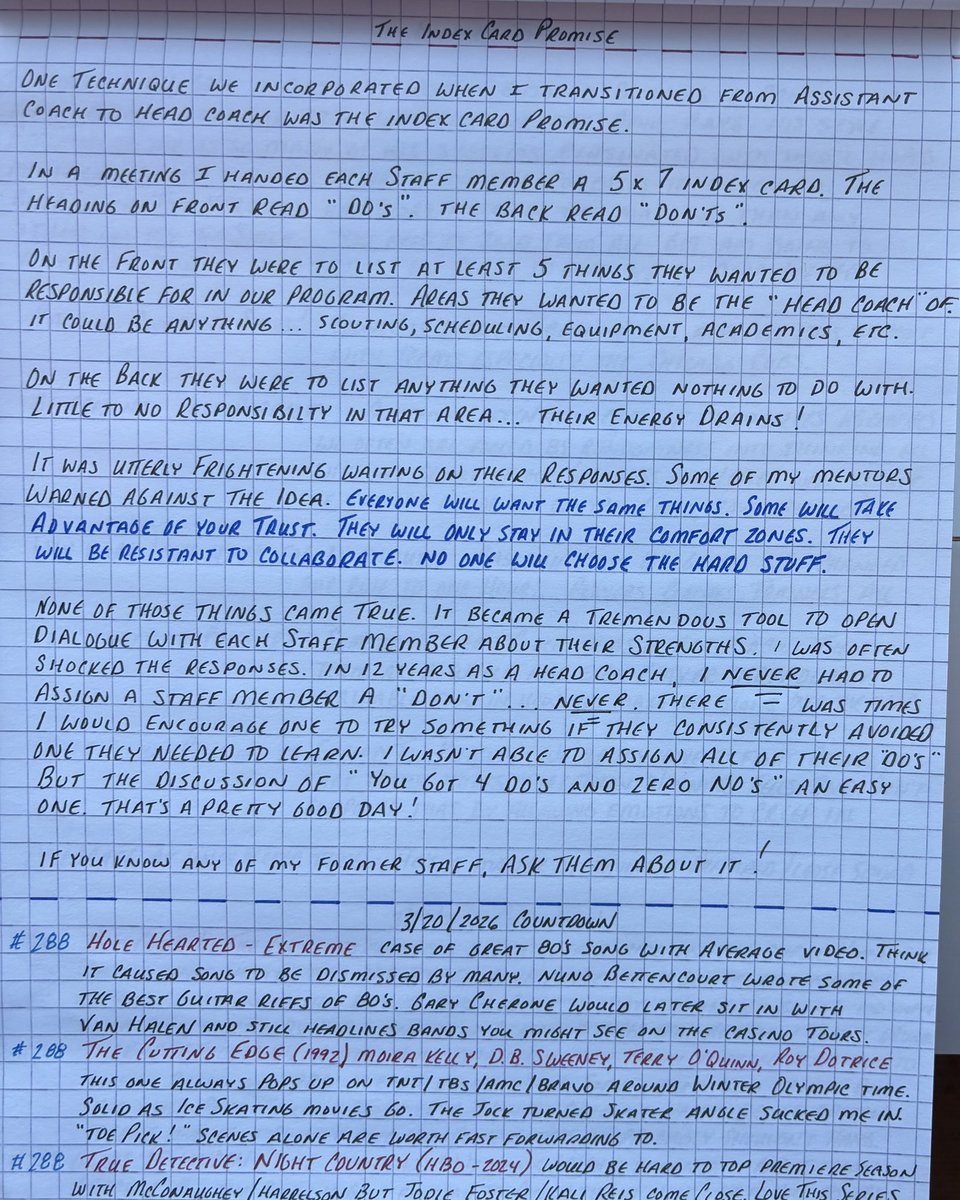 THE INDEX CARD PROMISE
ONE TECHNIQUE WE INCORPORATED WHEN I TRANSITIONED FROM ASSISTANT
COACH TO HEAD COACH WAS THE INDEX CARD PROMISE.
IN A MEETING I HANDED EACH STAFF MEMBER A 5 X 7 INDEX CARD. THE
HEADING ON FRONT READ "DO'S". THE BACK READ "DON'TS".
ON THE FRONT THEY WERE TO LIST AT LEAST 5 THINGS THEY WANTED TO BE
RESPONSIBLE FOR IN OUR PROGRAM. AREAS THEY WANTED TO BE THE "HEAD COACH" OF.
IT COULD BE ANYTHING... SCOUTING, SCHEDULING, EQUIPMENT, ACADEMICS, ETC.
ON THE BACK THEY WERE TO LIST ANYTHING THEY WANTED NOTHING TO DO WITH.
LITTLE TO NO RESPONSIBILTY IN THAT AREA... THEIR ENERGY DRAINS!
IT WAS UTTERLY FRIGHTENING WAITING ON THEIR RESPONSES. SOME OF MY MENTORS
WARNED AGAINST THE IDEA. EVERYONE WILL WANT THE SAME THINGS. SOME WILL TAKE
ADVANTAGE OF YOUR TRUST. THEY WILL ONLY STAY IN THEIR COMFORT ZONES. THEY
WILL BE RESISTANT TO COLLABORATE. NO ONE WILL CHOOSE THE HARD STUFF.
NONE OF THOSE THINGS CAME TRUE. IT BECAME A TREMENDOUS TOOL TO OPEN
DIALOGUE WITH EACH STAFF MEMBER ABOUT THEIR STRENGTHS. I WAS OFTEN
SHOCKED THE RESPONSES. IN 12 YEARS AS A HEAD COACH, I NEVER HAD TO
ASSIGN A STAFF MEMBER A "DON'T"... NEVER. THERE WAS TIMES
I WOULD ENCOURAGE ONE TO TRY SOMETHING IF THEY CONSISTENTLY AVOIDED
ONE THEY NEEDED TO LEARN. I WASN'T ABLE TO ASSIGN ALL OF THEIR "DO'S"
BUT THE DISCUSSION OF "YOU GOT 4 DO'S AND ZERO NO'S" AN EASY
ONE. THAT'S A PRETTY GOOD DAY!
IF YOU KNOW ANY OF MY FORMER STAFF, ASK THEM ABOUT IT!
3/20/2026 COUNTDOWN
#288 HOLE HEARTED - EXTREME CASE OF GREAT 80'S SONG WITH AVERAGE VIDEO. THINK
IT CAUSED SONG TO BE DISMISSED BY MANY. NUNO BETTENCOURT WROTE SOME OF
THE BEST GUITAR RIFFS OF 80'S. GARY CHERONE WOULD LATER SIT IN WITH
VAN HALEN AND STILL HEADLINES BANDS YOU MIGHT SEE ON THE CASINO TOURS.
#288 THE CUTTING EDGE (1992) MOIRA KELLY, D.B. SWEENEY, TERRY O'QUINN, ROY DOTRICE
THIS ONE ALWAYS POPS UP ON TNT/TBS/AMC/BRAVO AROUND WINTER OLYMPIC TIME.
SOLID AS ICE SKATING MOVIES GO. THE JOCK TURNED SKATER ANGLE SUCKED ME IN.
"TOE PICK!" SCENES ALONE ARE WORTH FAST FORWARDING TO.
#288 TRUE DETECTIVE: NIGHT COUNTRY (HBO - 2024) WOULD BE HARD TO TOP PREMIERE SEASON
WITH MCCONAUGHEY/HARRELSON BUT JODIE FOSTER/KALI REIS COME CLOSE. LOVE THIS SERIES